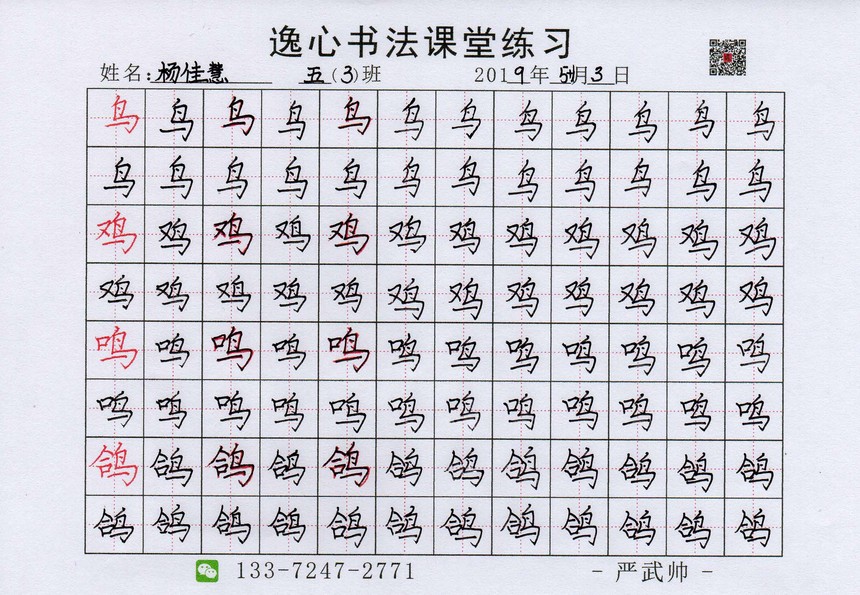 逸心书法课堂练习
姓名:杨佳慧 五(3)班 2019年5月3日
鸟鸟鸟鸟鸟鸟鸟鸟鸟鸟鸟鸟
鸟鸟鸟鸟鸟鸟鸟鸟鸟鸟鸟鸟
鸡鸡鸡鸡鸡鸡鸡鸡鸡鸡鸡鸡
鸡鸡鸡鸡鸡鸡鸡鸡鸡鸡鸡鸡
鸣鸣鸣鸣鸣鸣鸣鸣鸣鸣鸣鸣
鸣鸣鸣鸣鸣鸣鸣鸣鸣鸣鸣鸣
鸽鸽鸽鸽鸽鸽鸽鸽鸽鸽鸽鸽
鸽鸽鸽鸽鸽鸽鸽鸽鸽鸽鸽鸽
133-7247-2771 - 严武帅 -